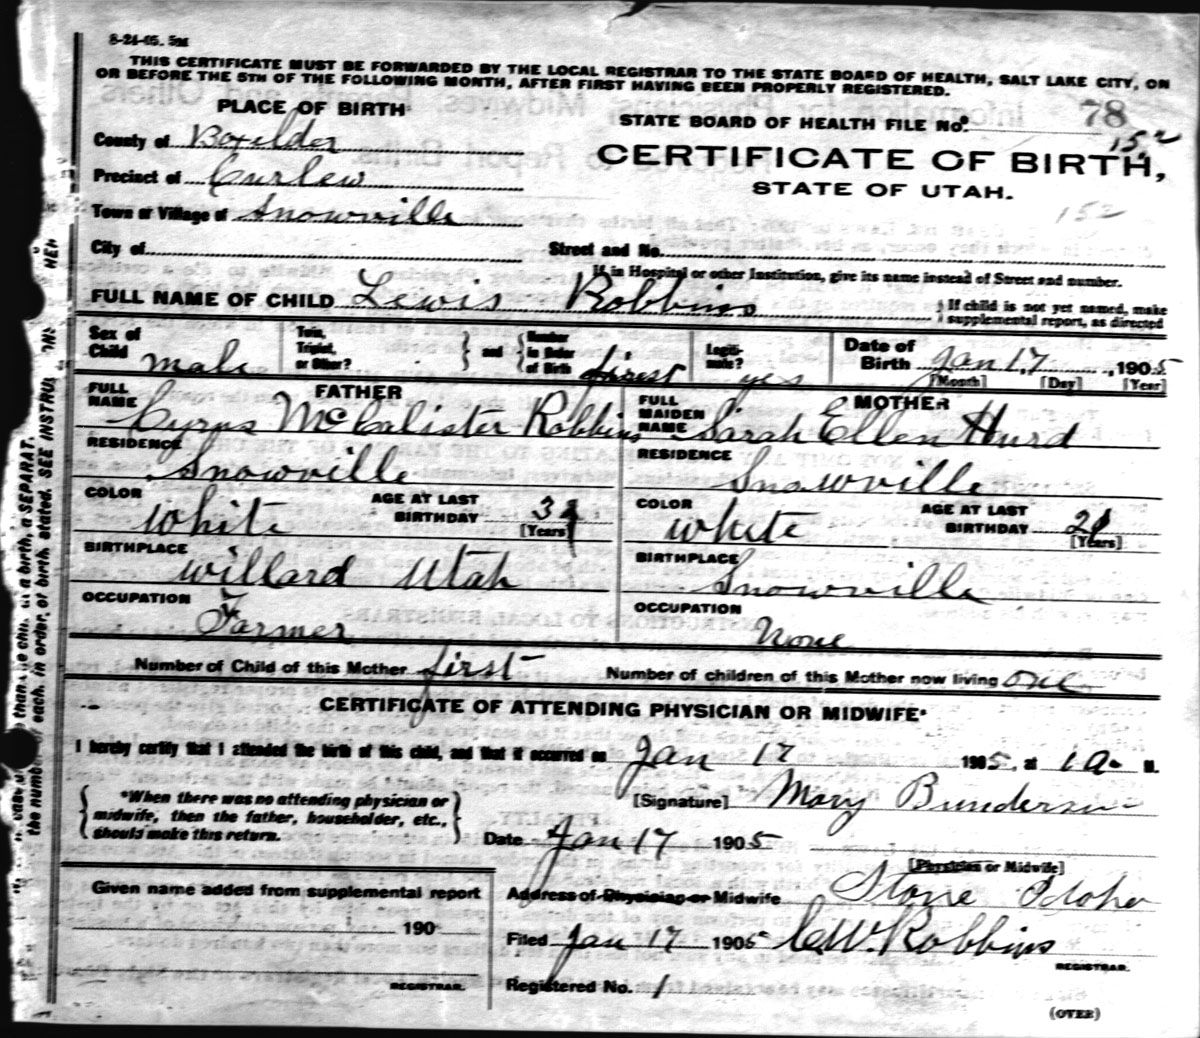 8-24-05. 5M
THIS CERTIFICATE MUST BE FORWARDED BY THE LOCAL REGISTRAR TO THE STATE BOARD OF HEALTH, SALT LAKE CITY, ON
OR BEFORE THE 5TH OF THE FOLLOWING MONTH, AFTER FIRST HAVING BEEN PROPERLY REGISTERED.
PLACE OF BIRTH
STATE BOARD OF HEALTH FILE No. 78
152
County of Boxelder
CERTIFICATE OF BIRTH,
Precinct of Curlew
STATE OF UTAH.
Town or Village of Snowville
152
City of Street and No.
If in Hospital or other Institution, give its name instead of Street and number.
FULL NAME OF CHILD Lewis Robbins
If child is not yet named, make
supplemental report, as directed
Sex of Child male
Twin, Triplet, or Other?
and Number in Order of Birth first
Legiti- mate? yes
Date of Birth Jan 17, 1905
[Month] [Day] [Year]
FATHER
FULL NAME Cyrus McCalister Robbins
MOTHER
FULL MAIDEN NAME Sarah Ellen Hurd
RESIDENCE Snowville
RESIDENCE Snowville
COLOR White AGE AT LAST BIRTHDAY [Years]
COLOR White AGE AT LAST BIRTHDAY [Years]
BIRTHPLACE Willard Utah
BIRTHPLACE Snowville
OCCUPATION Farmer
OCCUPATION None
Number of Child of this Mother first Number of children of this Mother now living one
CERTIFICATE OF ATTENDING PHYSICIAN OR MIDWIFE*
I hereby certify that I attended the birth of this child, and that it occurred on Jan 17 1905, at 1 a M.
*When there was no attending physician or
midwife, then the father, householder, etc.,
should make this return.
[Signature] Mary Bunderson
Date Jan 17 1905
[Physician or Midwife]
Given name added from supplemental report
190
REGISTRAR.
Address of Physician or Midwife Stone Idaho
Filed Jan 17 1905 C W. Robbins
REGISTRAR.
Registered No. 1
(OVER)